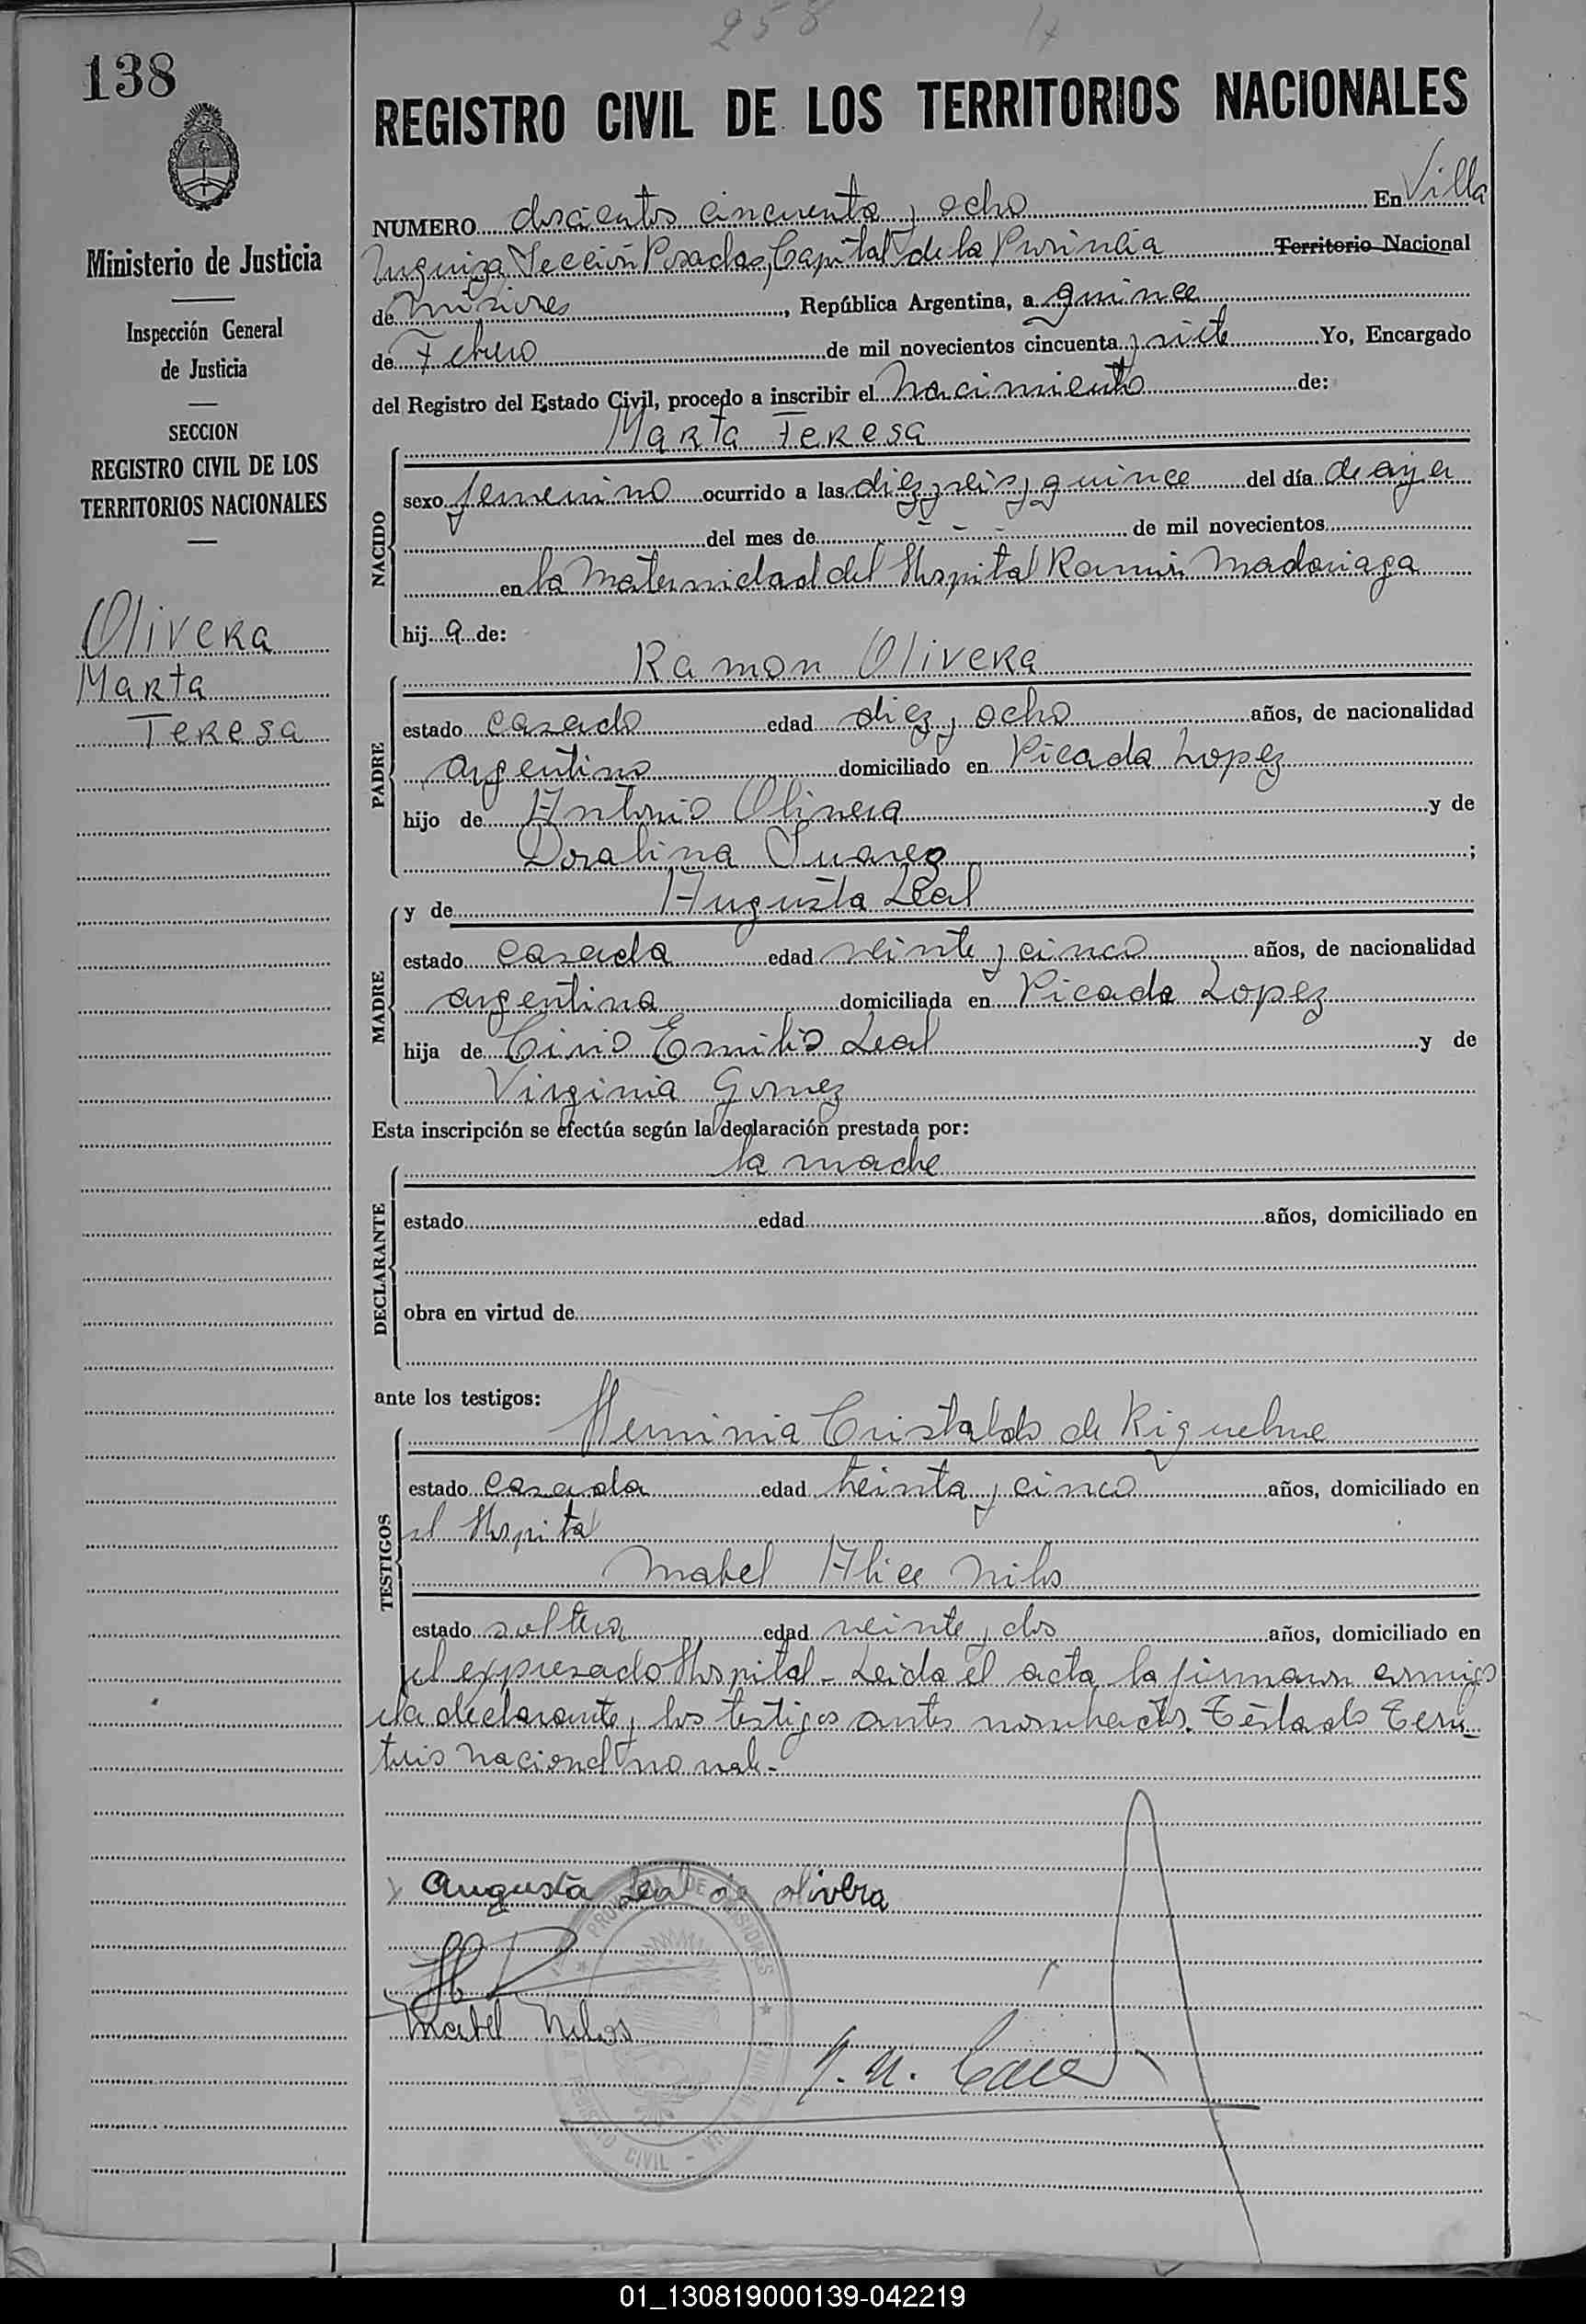 258
138
REGISTRO CIVIL DE LOS TERRITORIOS NACIONALES
Ministerio de Justicia
Inspección General
de Justicia
SECCION
REGISTRO CIVIL DE LOS
TERRITORIOS NACIONALES
Olivera
Marta
Teresa
NUMERO doscientos cincuenta y ocho En Villa
Urquiza Sección Posadas, Capital de la Provincia Territorio Nacional
de Misiones, República Argentina, a quince
de Febrero de mil novecientos cincuenta y siete Yo, Encargado
del Registro del Estado Civil, procedo a inscribir el nacimiento de:
Marta Teresa
NACIDO
sexo femenino ocurrido a las diez y seis y quince del día de ayer
del mes de - - - de mil novecientos
en la Maternidad del Hospital Ramón Madariaga
hij a de:
Ramon Olivera
PADRE
estado casado edad diez y ocho años, de nacionalidad
argentino domiciliado en Picada Lopez
hijo de Antonio Olivera y de
Doralina Suarez;
y de Augusta Leal
MADRE
estado casada edad veinte y cinco años, de nacionalidad
argentina domiciliada en Picada Lopez
hija de Cirio Emilio Leal y de
Virginia Gomez
Esta inscripción se efectúa según la declaración prestada por:
la madre
DECLARANTE
estado edad años, domiciliado en
obra en virtud de
ante los testigos:
Herminia Cristaldo de Riquelme
TESTIGOS
estado casada edad treinta y cinco años, domiciliado en
el Hospital
Mabel Alice Nilos
estado soltera edad veinte y dos años, domiciliado en
el expresado Hospital - Leida el acta la firmaron conmigo
la declarante y los testigos antes nombrados. Testado Terri-
torio Nacional no vale -
Augusta Leal de olivera
Mabel Nilos
PROVINCIA DE MISIONES
REGISTRO CIVIL - VILLA URQUIZA
01_130819000139-042219